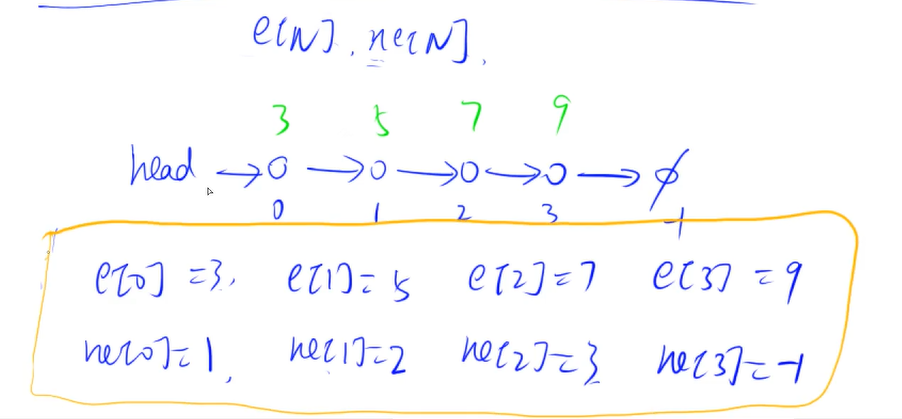 e[N], ne[N].
3 5 7 9
head → 0 → 0 → 0 → 0 → ∅
0 1 2 3 -1
e[0]=3, e[1]=5 e[2]=7 e[3]=9
ne[0]=1, ne[1]=2 ne[2]=3 ne[3]=-1